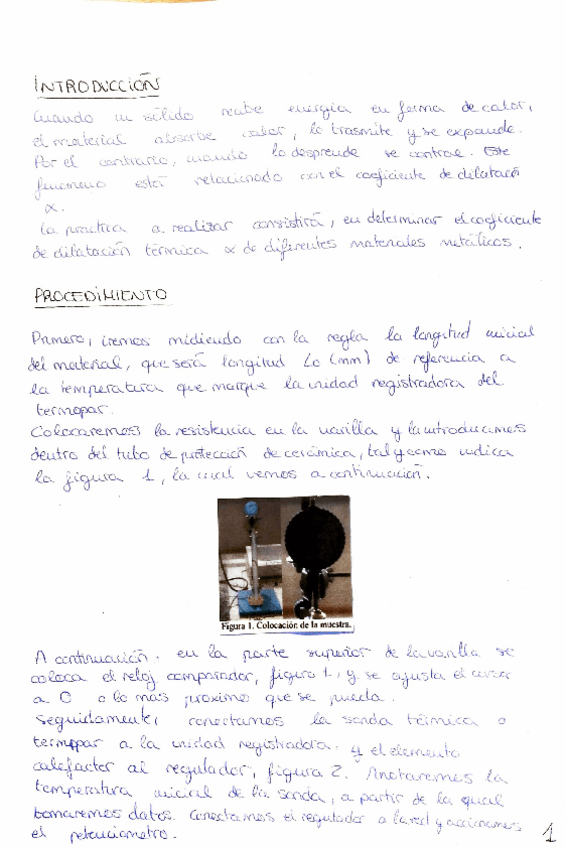 INTRODUCCIÓN
Cuando un sólido recibe energía en forma de calor,
el material absorbe calor, lo trasmite y se expande.
Por el contrario, cuando lo desprende se contrae. Este
fenomeno está relacionado con el coeficiente de dilatación
α.
La práctica a realizar consistirá, en determinar el coeficiente
de dilatación térmica α de diferentes materiales metálicos.
PROCEDIMIENTO
Primero, iremos midiendo con la regla la longitud inicial
del material, que será longitud Lo (mm) de referencia a
la temperatura que marque la unidad registradora del
termopar.
Colocaremos la resistencia en la varilla y la introducimos
dentro del tubo de protección de cerámica, tal y como indica
la figura 1, la cual vemos a continuación.
Figura 1. Colocación de la muestra.
A continuación, en la parte superior de la varilla se
coloca el reloj comparador, figura 1, y se ajusta el cursor
a 0 o lo más próximo que se pueda.
Seguidamente, conectamos la sonda térmica o
termopar a la unidad registradora, y el elemento
calefactor al regulador, figura 2. Anotaremos la
temperatura inicial de la sonda, a partir de la cual
tomaremos datos. Conectamos el regulador a la red y accionamos
el potenciometro.
1